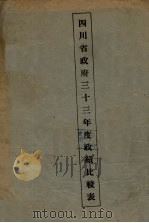 四川省政府三十三年度政績比較表